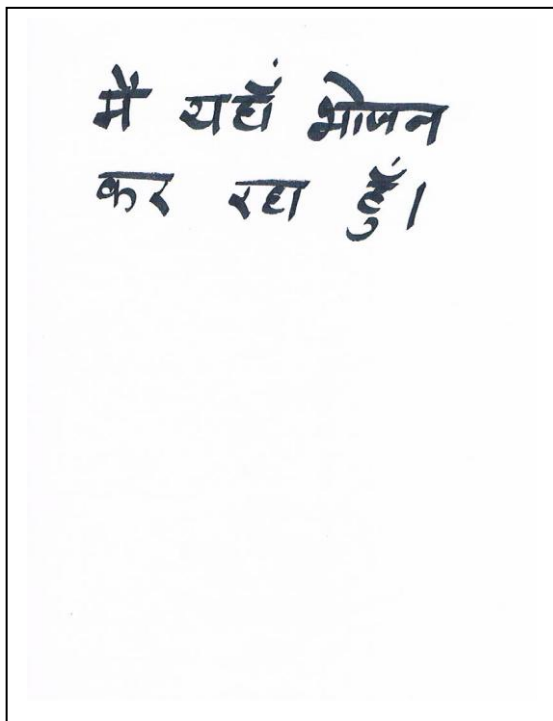 मैं यहाँ भोजन
कर रहा हूँ।